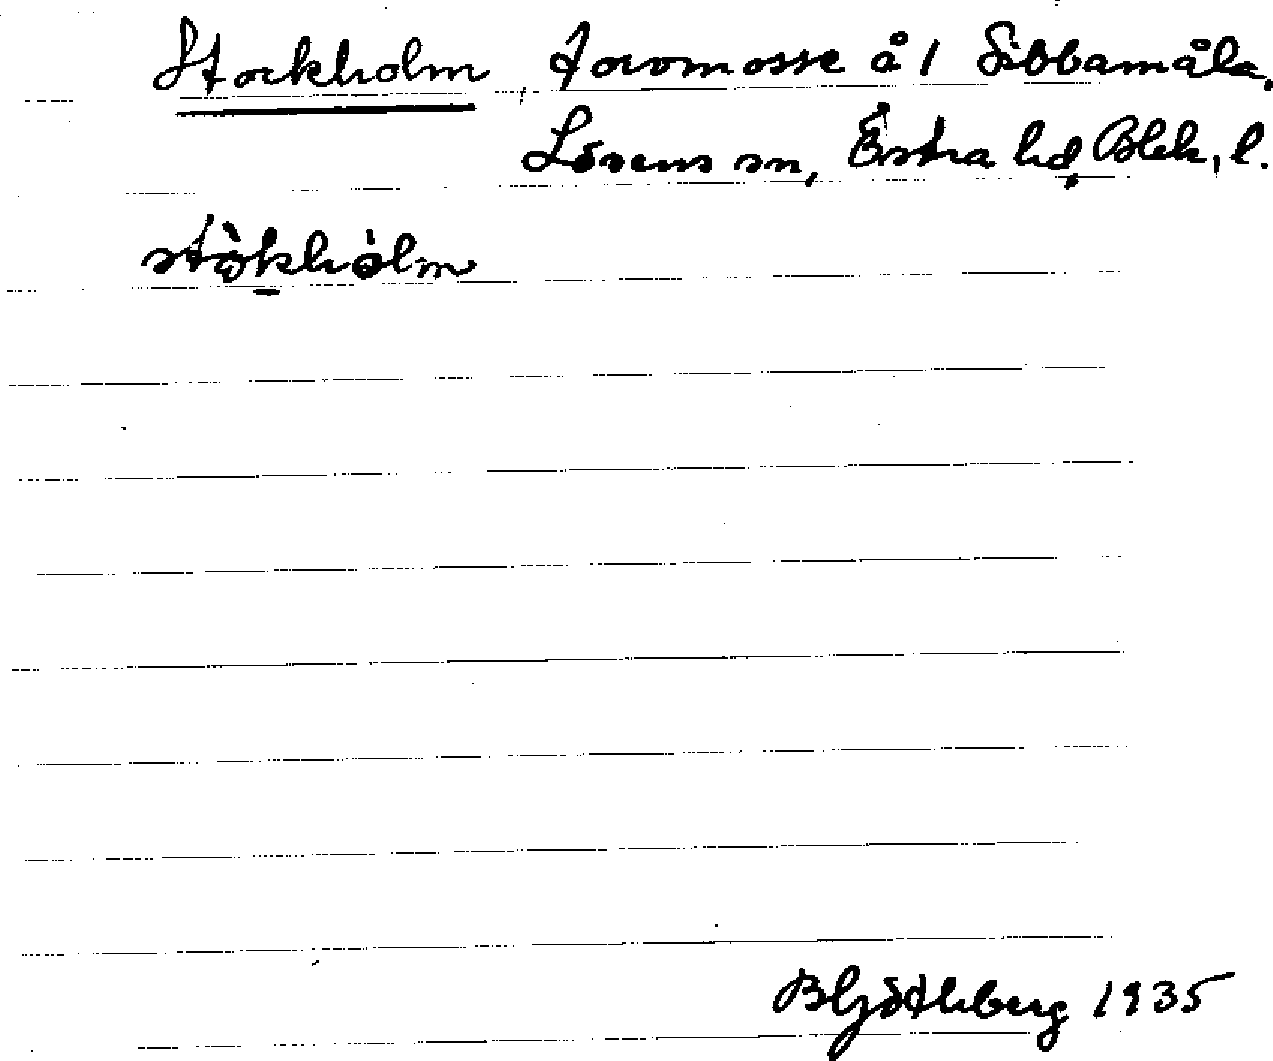 Stockholm, torvmosse å 1 Sibbamåla,
Lösens sn, Östra hd, Blek. l.
stòkhòlm
B Götlherg 1935